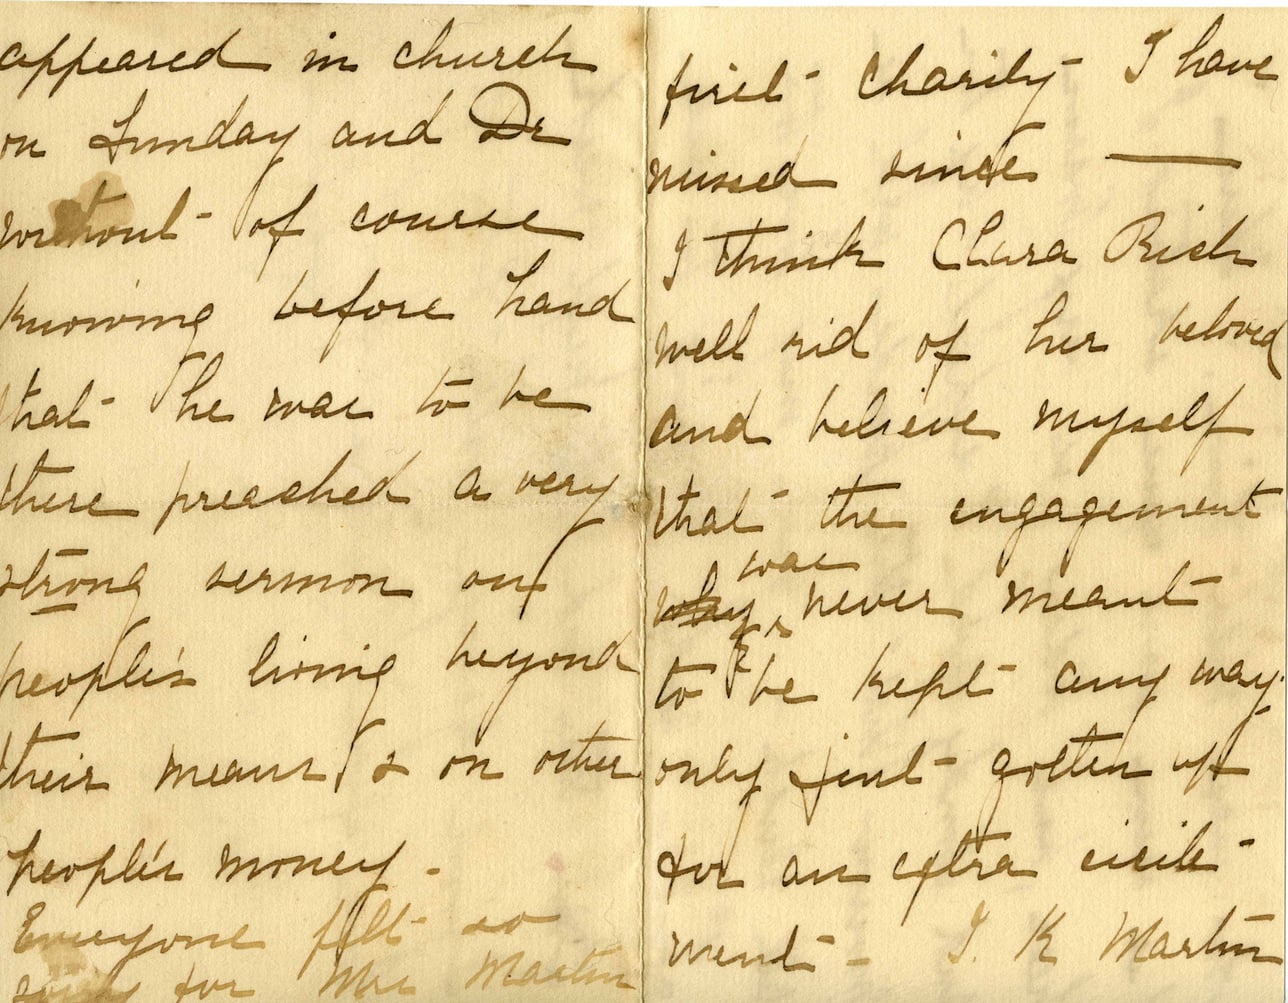 appeared in church
on Sunday and Dr
without of course
knowing before hand
that he was to be
there preached a very
strong sermon on
people's living beyond
their means & on other
people's money -
Everyone felt so
sorry for Mrs Martin
first charity I have
missed since —
I think Clara Rich
well rid of her beloved
and believe myself
that the engagement
was
why never meant
to be kept any way.
only just gotten up
for an extra excite-
ment - J. K Martin